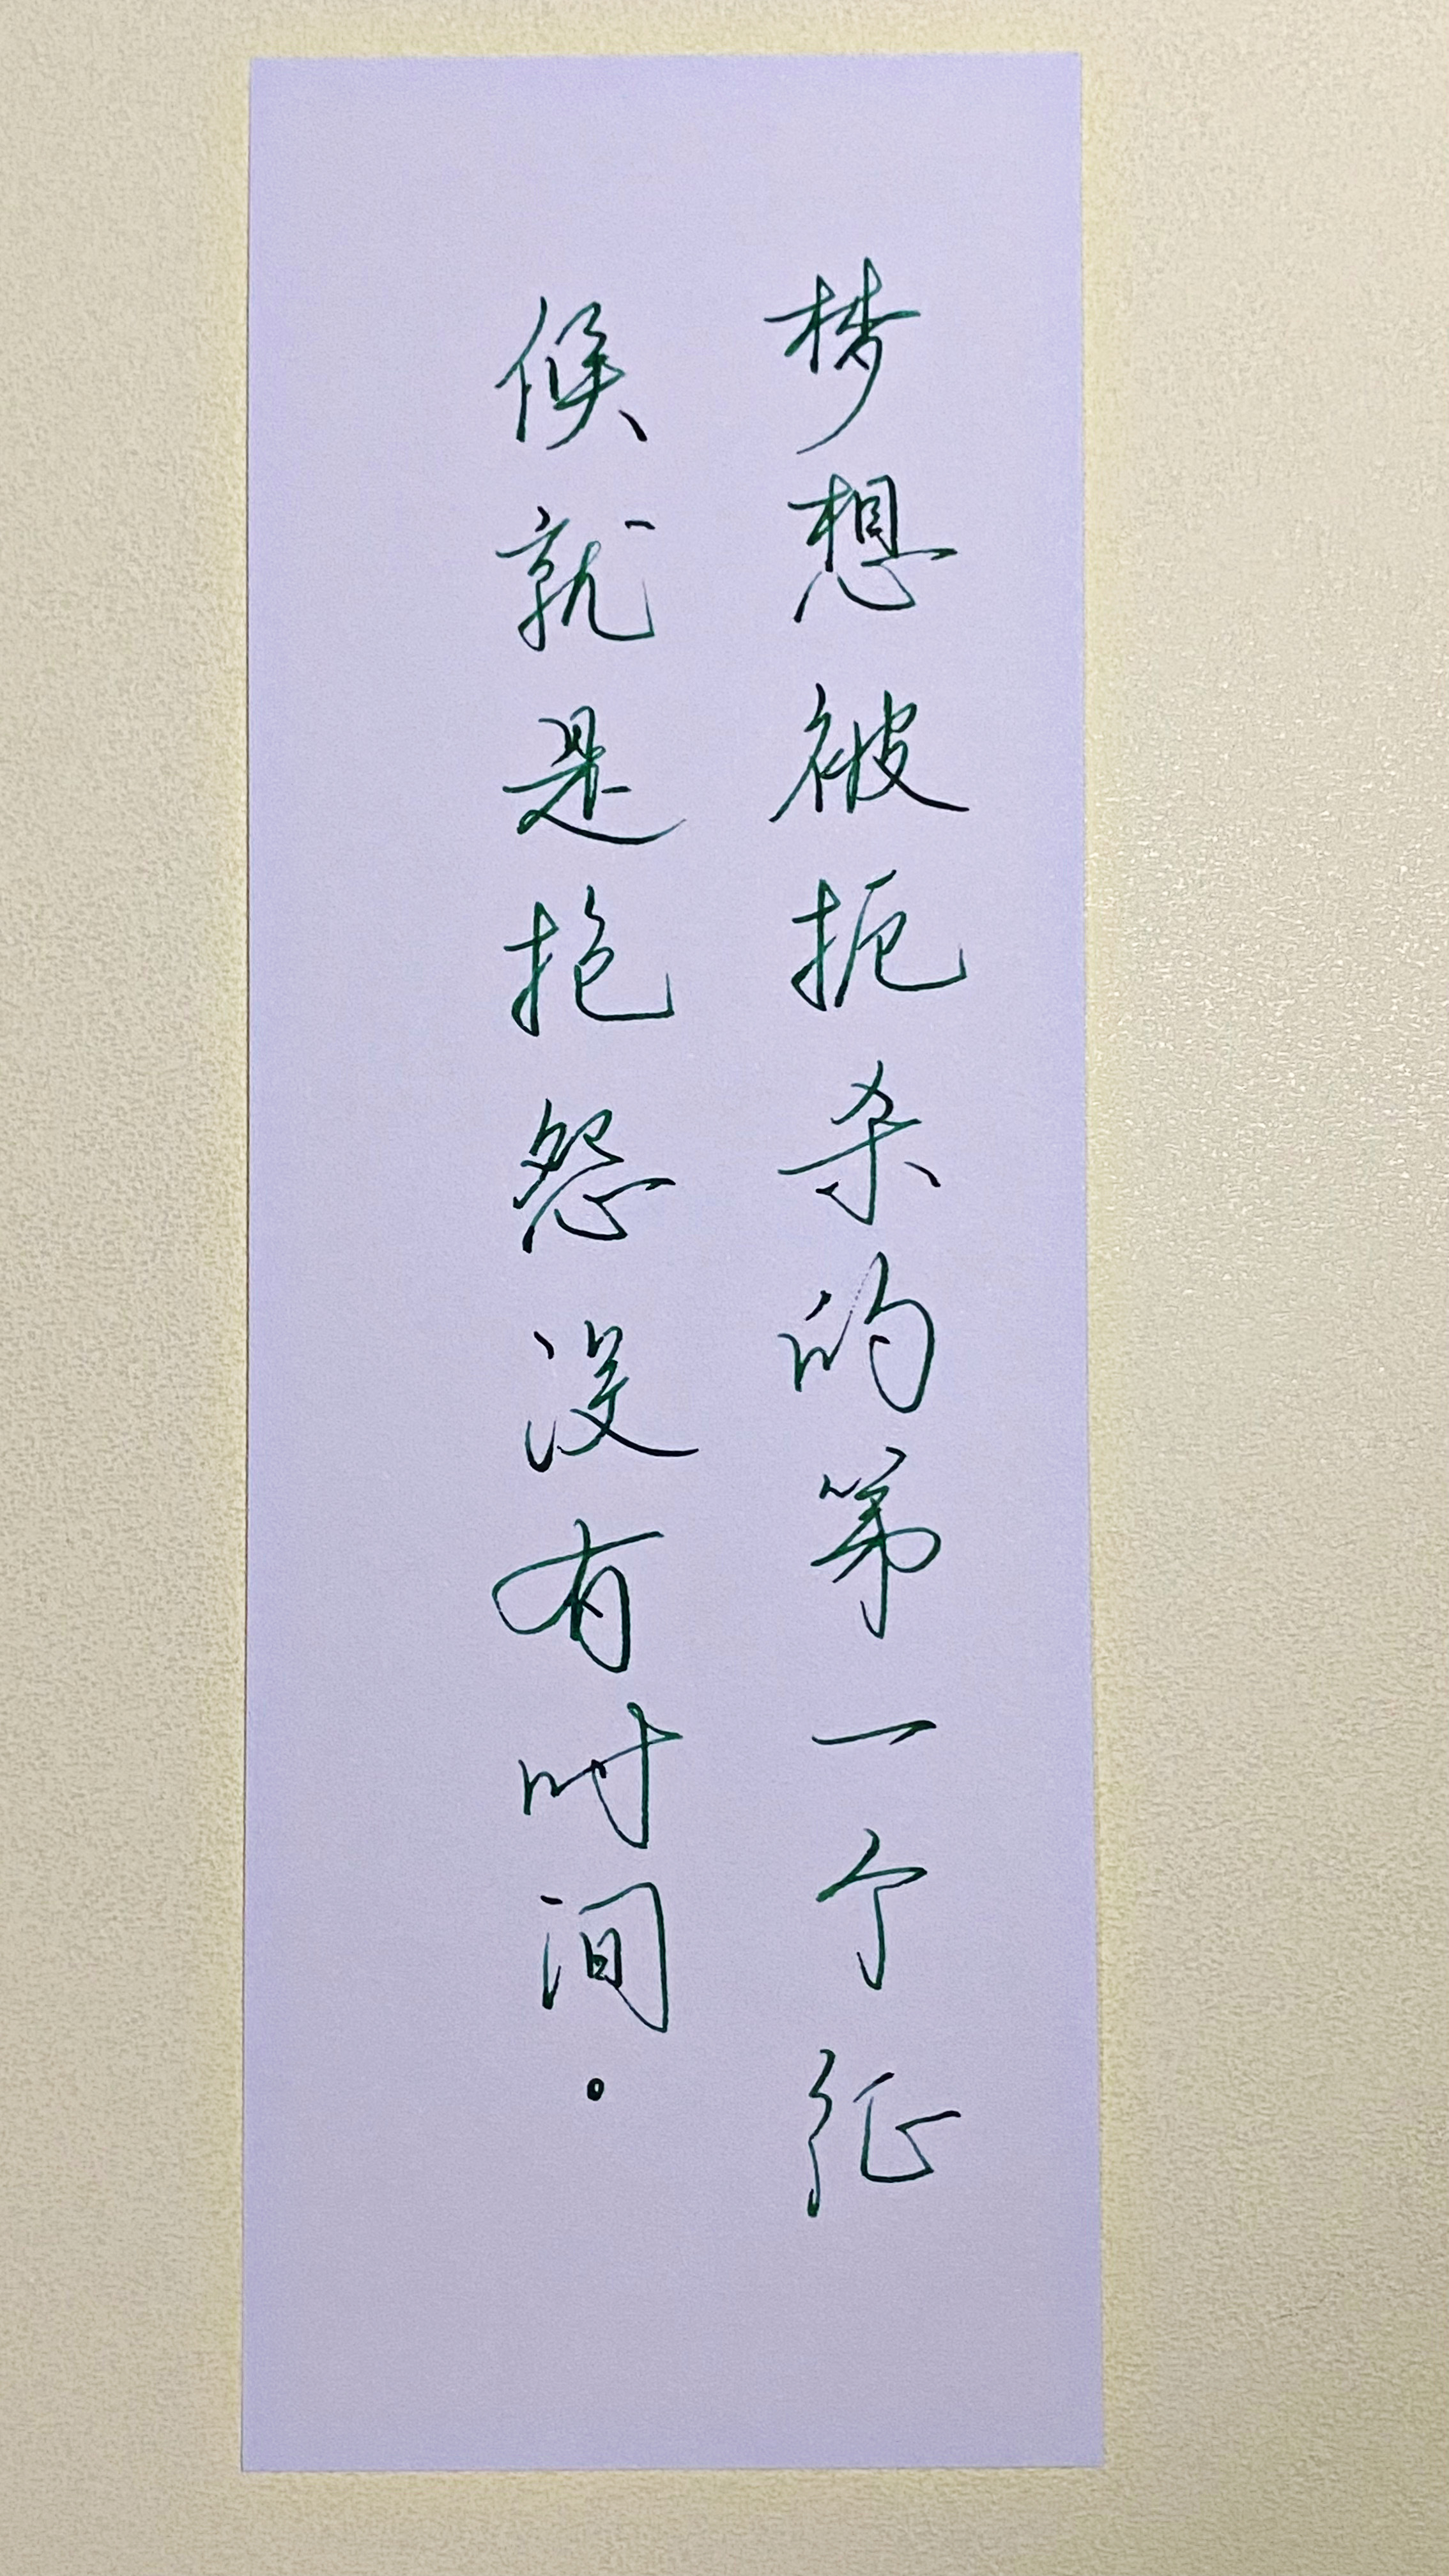 梦想被扼杀的第一个征
候就是抱怨没有时间。